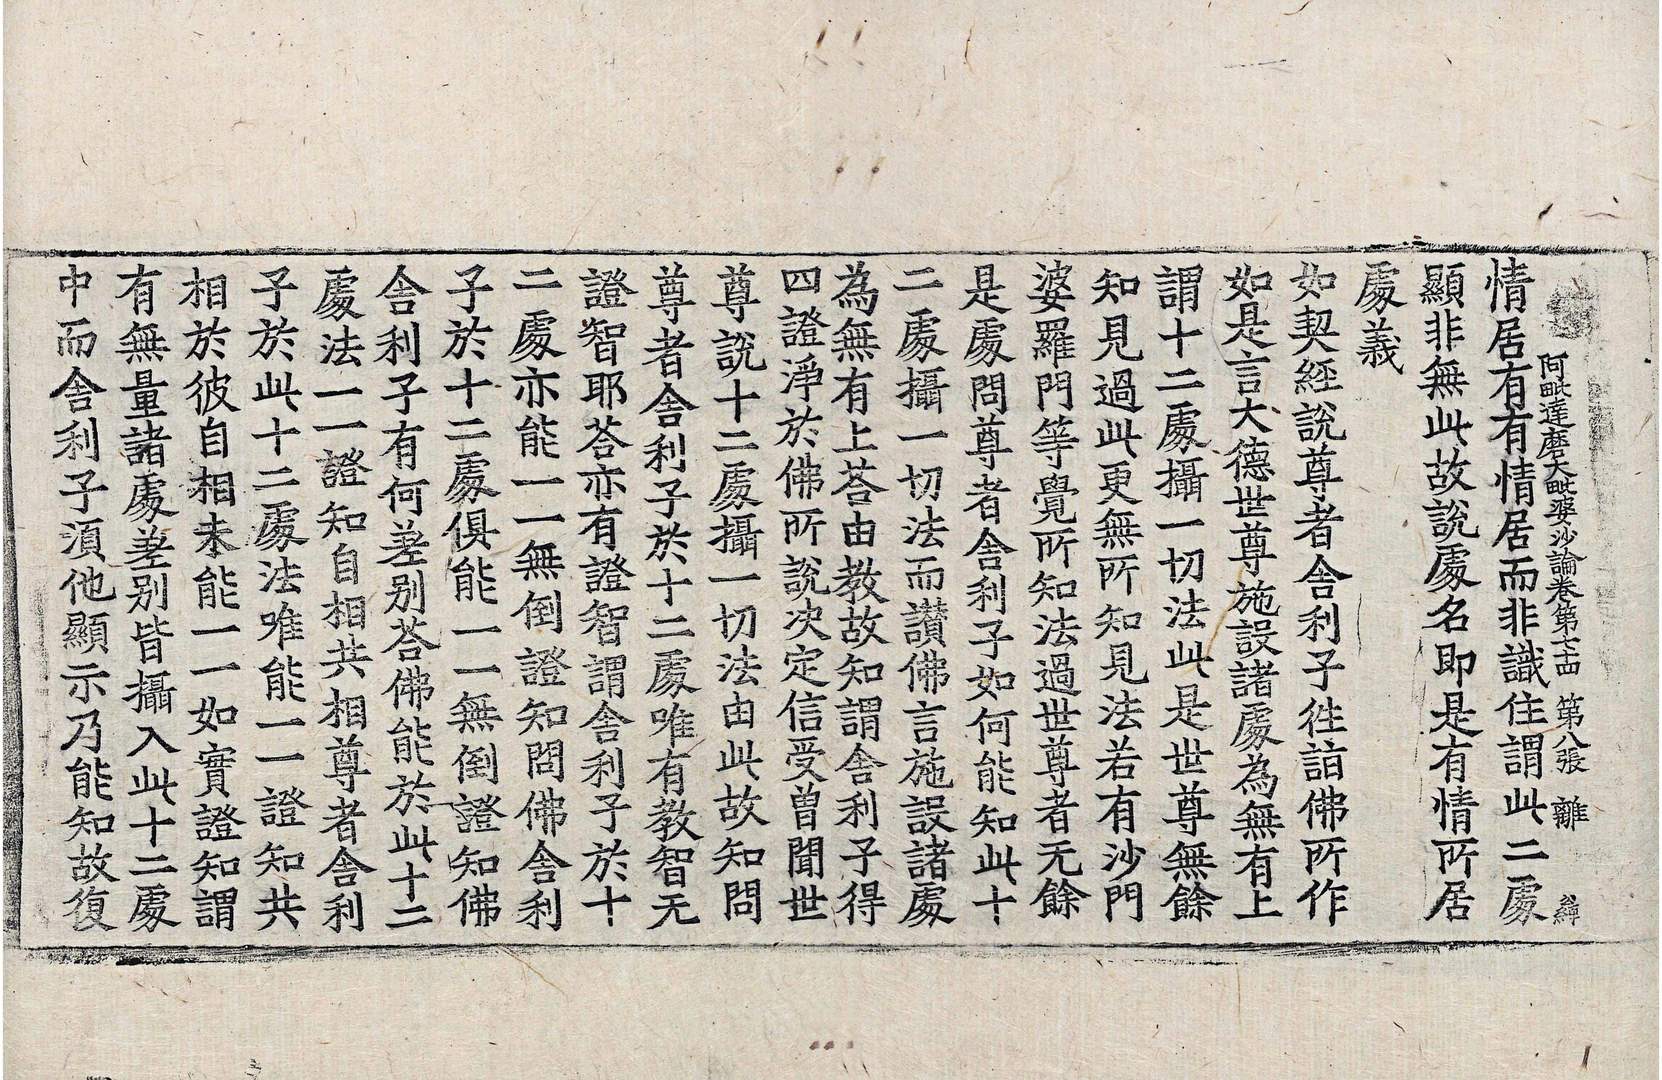 阿毗達磨大毗婆沙論卷第七十四　第八張　離
情居有有情居而非識住謂此二處
顯非無此故說處名即是有情所居
處義
如契經說尊者舍利子往詣佛所作
如是言大德世尊施設諸處為無有上
謂十二處攝一切法此是世尊無餘
知見過此更無所知見法若有沙門
婆羅門等覺所知法過世尊者无餘
是處問尊者舍利子如何能知此十
二處攝一切法而讃佛言施設諸處
為無有上荅由教故知謂舍利子得
四證淨於佛所說决定信受曾聞世
尊說十二處攝一切法由此故知問
尊者舍利子於十二處唯有教智无
證智耶荅亦有證智謂舍利子於十
二處亦能一一無倒證知問佛舍利
子於十二處俱能一一無倒證知佛
舍利子有何差别荅佛能於此十二
處法一一證知自相共相尊者舍利
子於此十二處法唯能一一證知共
相於彼自相未能一一如實證知謂
有無量諸處差别皆攝入此十二處
中而舍利子湏他顯示乃能知故復